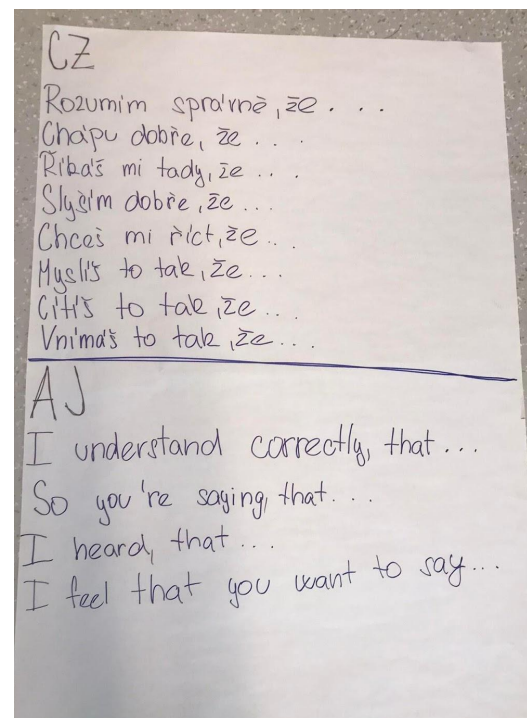 CZ
Rozumím správně, že . . .
Chápu dobře, že . . .
Říkáš mi tady, že . . .
Slyším dobře, že ...
Chceš mi říct, že ...
Myslíš to tak, že ...
Cítíš to tak, že ...
Vnímáš to tak, že ...
AJ
I understand correctly, that ...
So you're saying, that ...
I heard, that ...
I feel that you want to say ...